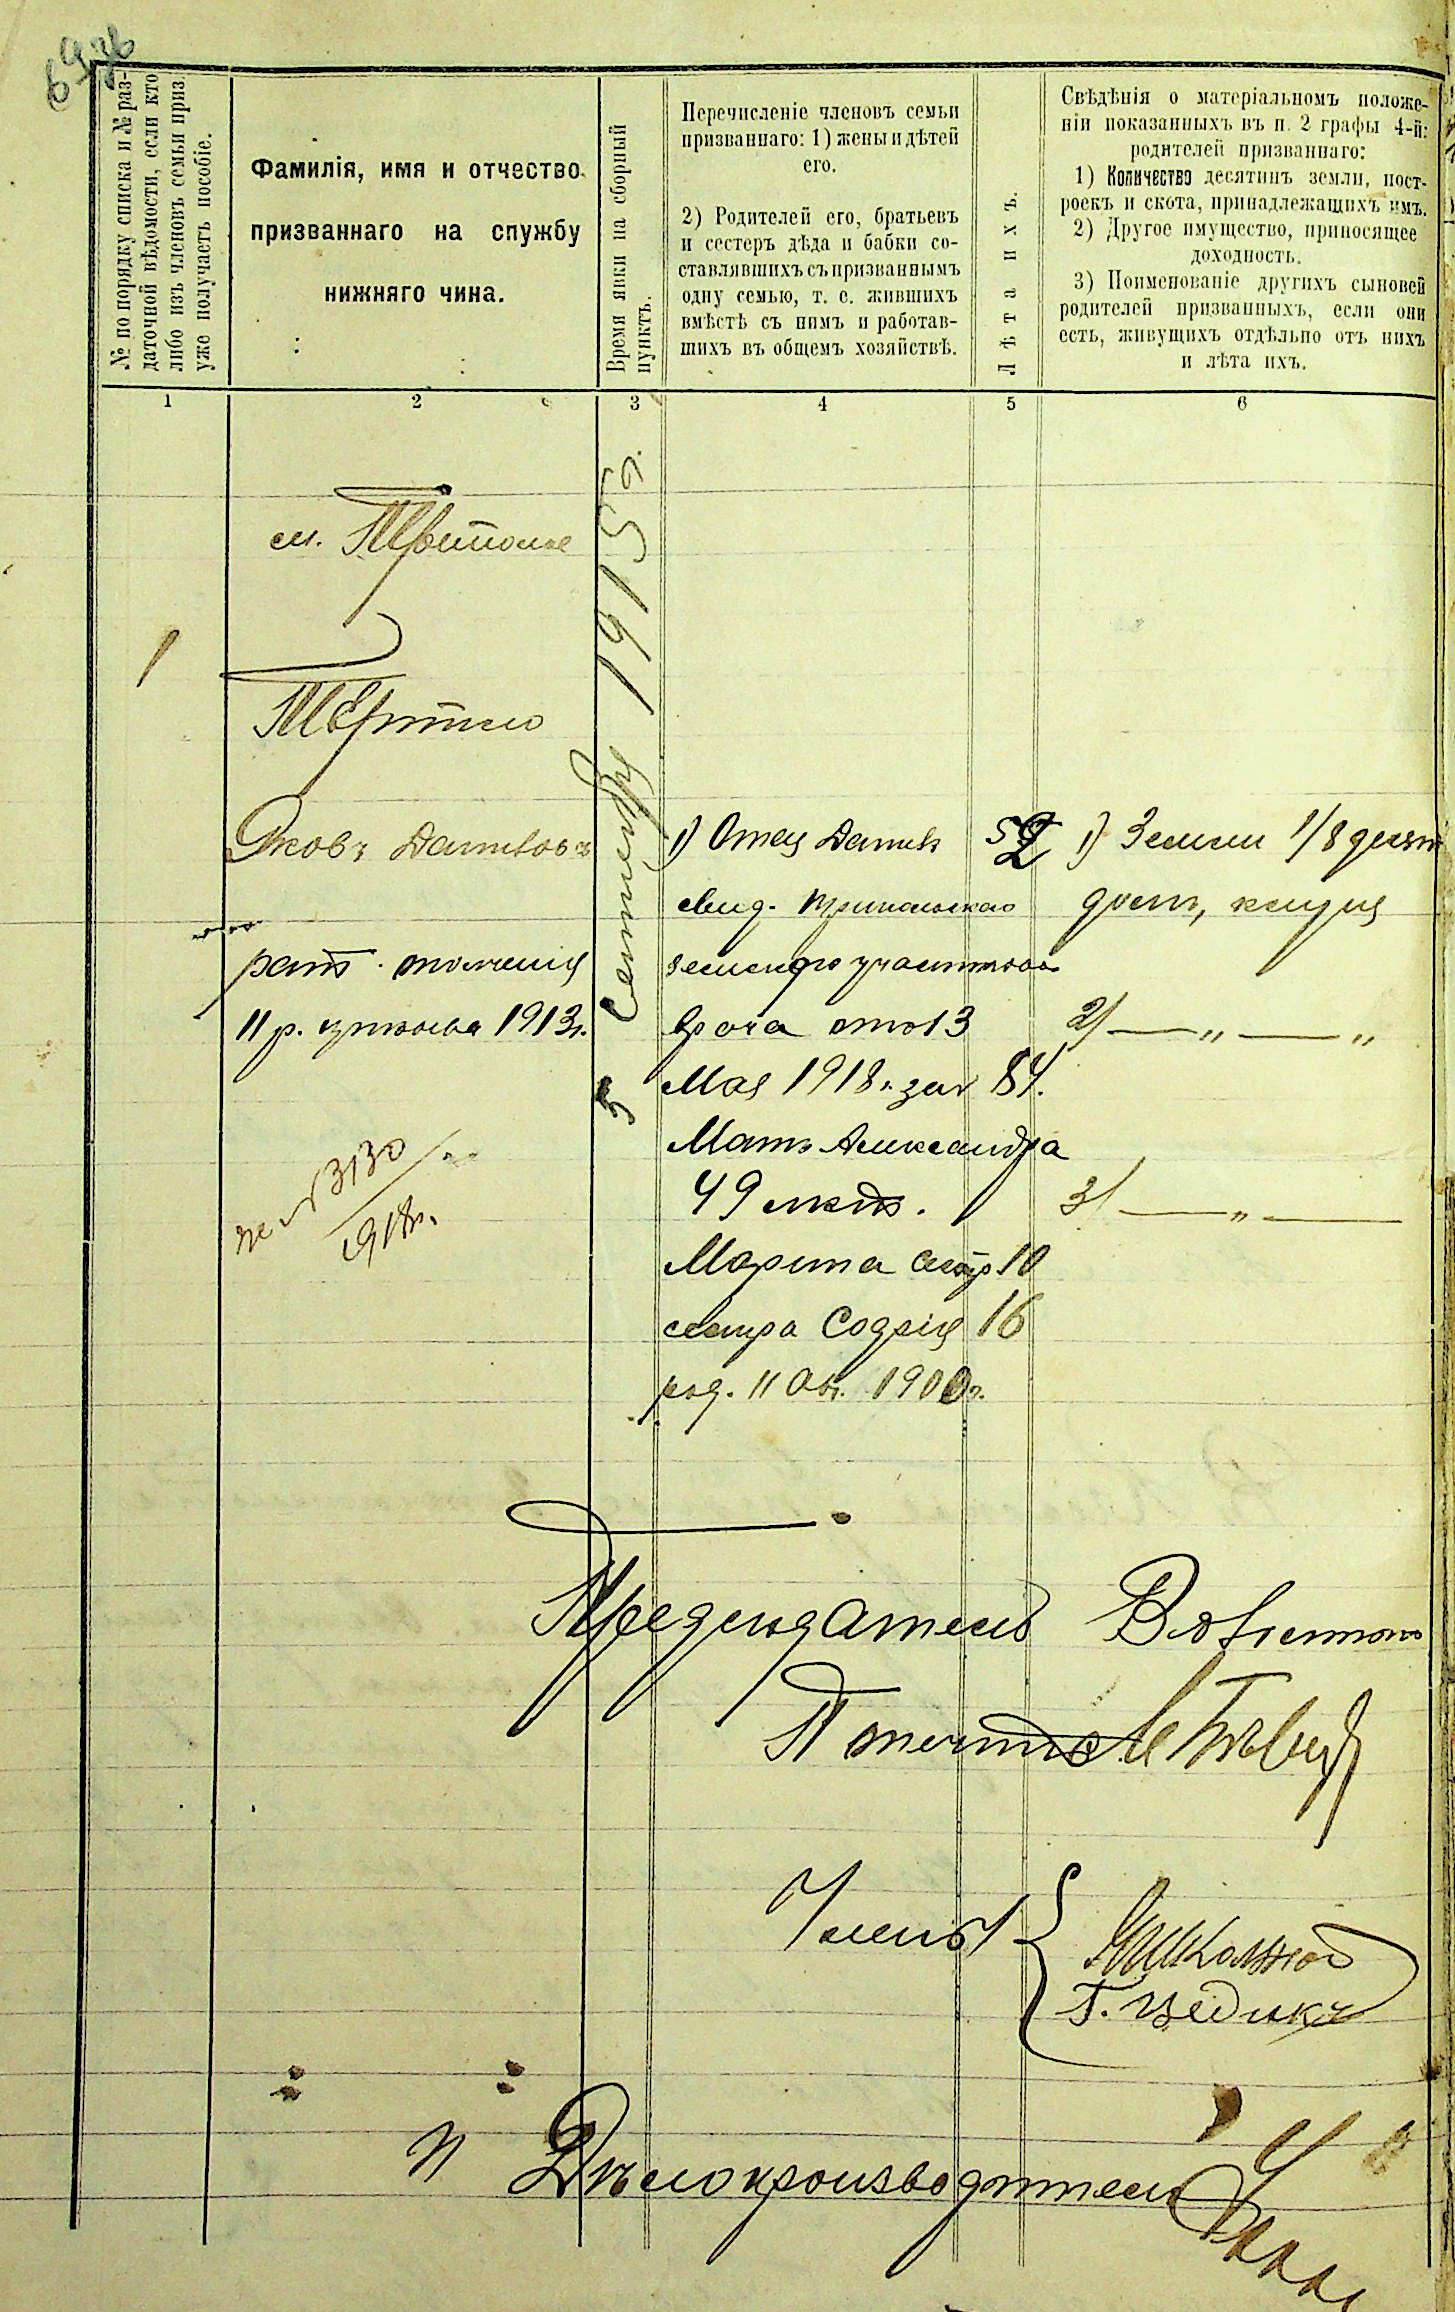 № по порядку списка и № раз-
даточной вѣдомости, если кто
либо изъ членовъ семьи приз.
уже получаетъ пособіе.
Фамилія, имя и отчество
призваннаго на службу
нижняго чина.
Время явки на сборный
пунктъ.
Перечисленіе членовъ семьи
призваннаго: 1) жены и дѣтей
его.
2) Родителей его, братьевъ
и сестеръ дѣда и бабки со-
ставлявшихъ съ призваннымъ
одну семью, т. е. жившихъ
вмѣстѣ съ нимъ и работав-
шихъ въ общемъ хозяйствѣ.
Лѣта ихъ.
Свѣдѣнія о матеріальномъ положе-
ніи показанныхъ въ п. 2 графы 4-й:
родителей призваннаго:
1) Количество десятинъ земли, пост-
роекъ и скота, принадлежащихъ имъ.
2) Другое имущество, приносящее
доходность.
3) Поименованіе другихъ сыновей
родителей призванныхъ, если они
есть, живущихъ отдѣльно отъ нихъ
и лѣта ихъ.
1 2 3 4 5 6
1
Яковъ
11 р. 1913 г.
№ 3130
1918 г.
5 Сентября 1915 г.
1) Отецъ Данилъ 52
свид. Трипольскаго
земскаго участковаго
врача отъ 13
Мая 1918 г. за № 84.
Мать Александра
49 лѣтъ.
Марина сестр 10
сестра Софія 16
род. 11 1900 г.
1) Земли 1/8 десят
2) — „ — „
3) — „ —
Предсѣдатель
Члены {
Г. Цедикъ
Дѣлопроизводитель